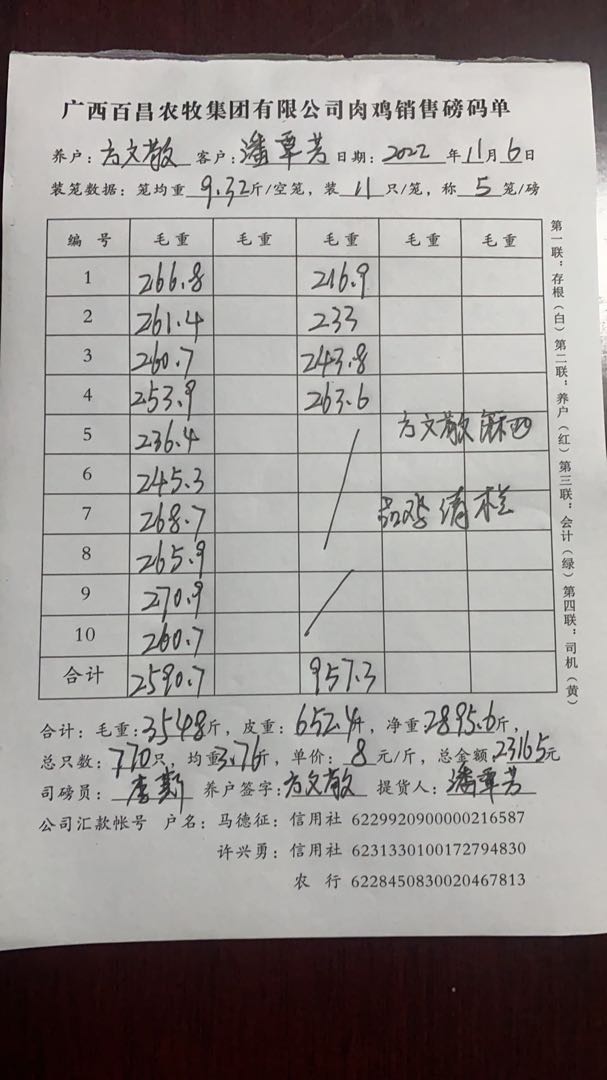 广西百昌农牧集团有限公司肉鸡销售磅码单
养户：方文敢 客户：潘覃芳 日期：2022 年 11 月 6 日
装笼数据：笼均重 9.32 斤/空笼，装 11 只/笼，称 5 笼/磅
编 号 毛 重 毛 重 毛 重 毛 重 毛 重
1 266.8 216.9
2 261.4 233
3 260.7 243.8
4 253.9 263.6
5 236.4 方文敢 麻四
6 245.3
7 268.7 鸡 清栏
8 265.9
9 270.9
10 260.7
合计 2590.7 957.3
合计：毛重：3548斤，皮重：652.4斤，净重：2895.6斤，
总只数：770只，均重3.76斤，单价：8 元/斤，总金额，23165元
司磅员： 养户签字：方文敢 提货人：潘覃芳
公司汇款帐号 户名：马德征：信用社 6229920900000216587
许兴勇：信用社 6231330100172794830
农 行 6228450830020467813
第一联：存根（白）第二联：养户（红）第三联：会计（绿）第四联：司机（黄）